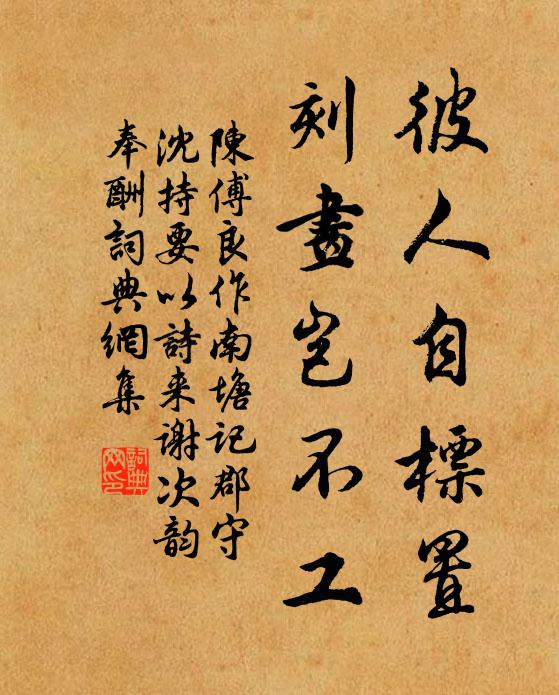 彼人自標置
刻畫豈不工
陳傅良作南塘記郡守
沈持要以詩来謝次韵
奉酬詞典網集
詞典網印